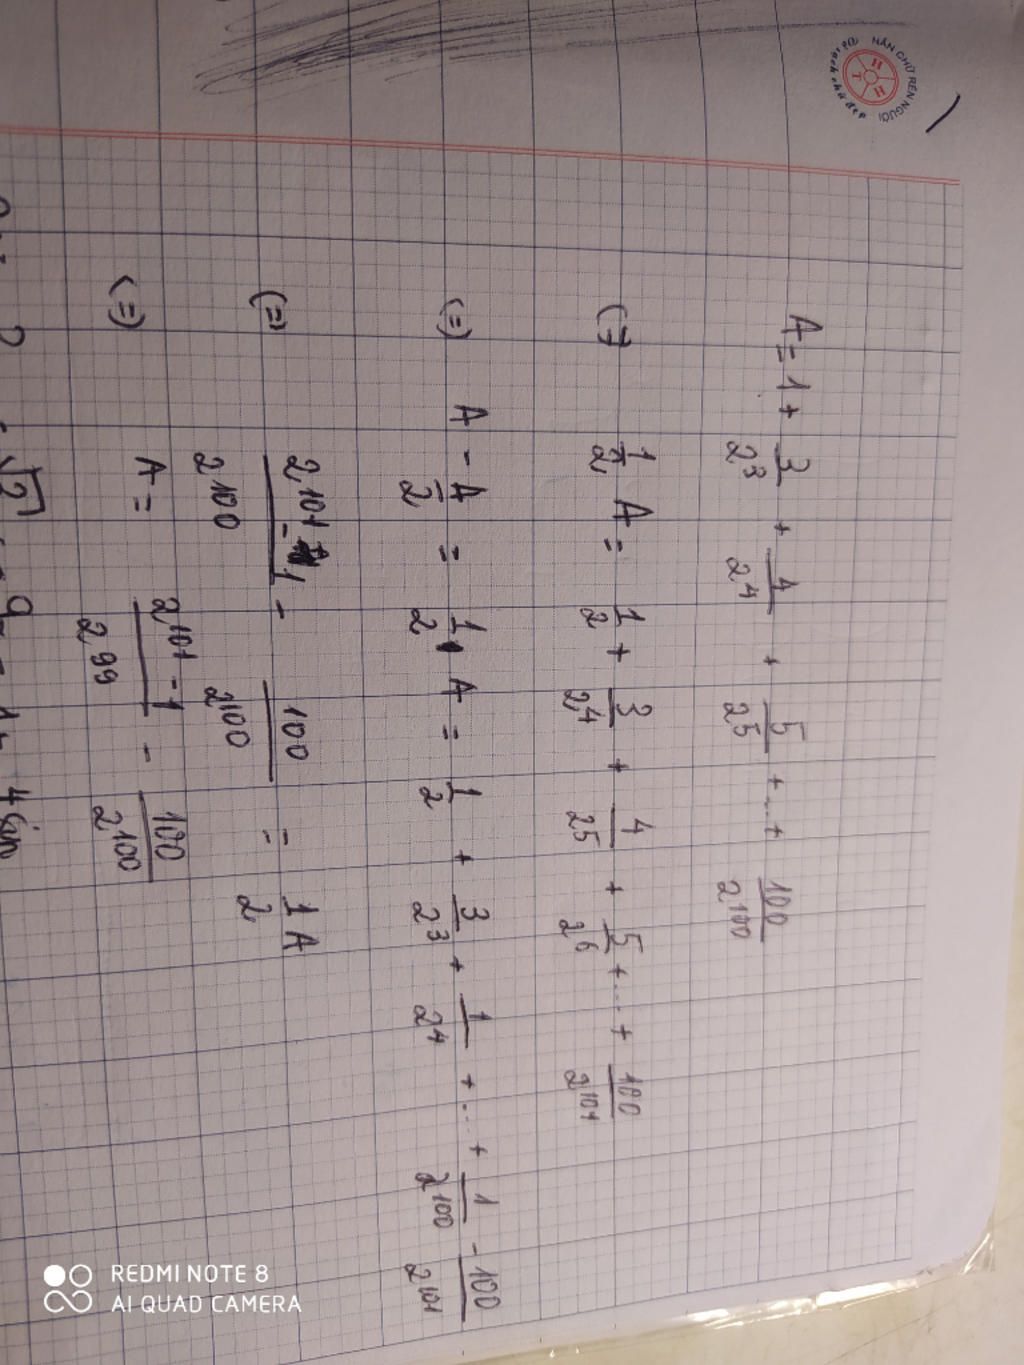 NẮN CHỮ RÈN NGƯỜI
H T H
A = 1 + 3/2^3 + 4/2^4 + 5/2^5 + ... + 100/2^100
(=) 1/2 A = 1/2 + 3/2^4 + 4/2^5 + 5/2^6 + ... + 100/2^101
(=) A - A/2 = 1/2 A = 1/2 + 3/2^3 + 1/2^4 + ... + 1/2^100 - 100/2^101
(=) 2^101 - 1/2^100 - 100/2^100 = 1/2 A
(=) A = 2^101 - 1/2^99 - 100/2^100
REDMI NOTE 8
AI QUAD CAMERA